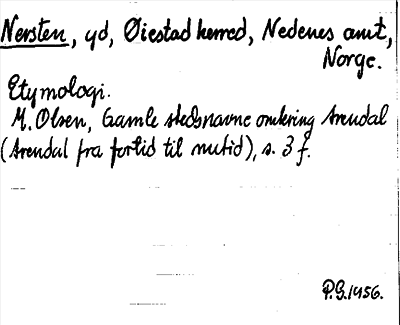 Nersten, yd, Øiestad herred, Nedenes amt,
Norge.
Etymologi.
M. Olsen, Gamle stedsnavne omkring Arendal
(Arendal fra fortid til nutid), s. 3 f.
P.G. 1956.